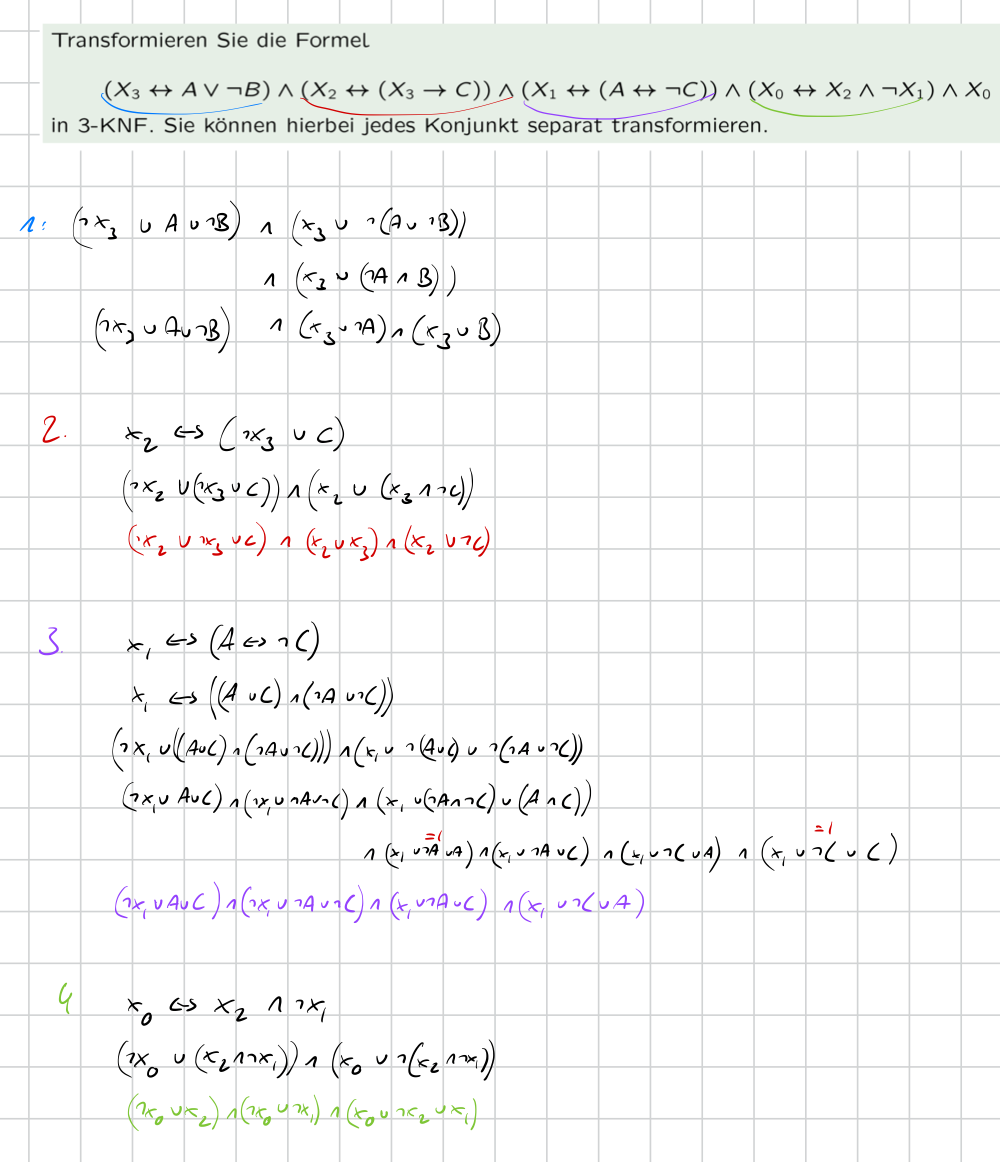 Transformieren Sie die Formel
(X₃ ↔ A ∨ ¬B) ∧ (X₂ ↔ (X₃ → C)) ∧ (X₁ ↔ (A ↔ ¬C)) ∧ (X₀ ↔ X₂ ∧ ¬X₁) ∧ X₀
in 3-KNF. Sie können hierbei jedes Konjunkt separat transformieren.
1: (¬x₃ ∨ A ∨ ¬B) ∧ (x₃ ∨ ¬(A ∨ ¬B))
∧ (x₃ ∨ (¬A ∧ B))
(¬x₃ ∨ A ∨ ¬B) ∧ (x₃ ∨ ¬A) ∧ (x₃ ∨ B)
2. x₂ ⇔ (¬x₃ ∨ C)
(¬x₂ ∨ (¬x₃ ∨ C)) ∧ (x₂ ∨ (x₃ ∧ ¬C))
(¬x₂ ∨ ¬x₃ ∨ C) ∧ (x₂ ∨ x₃) ∧ (x₂ ∨ ¬C)
3. x₁ ⇔ (A ⇔ ¬C)
x₁ ⇔ ((A ∨ C) ∧ (¬A ∨ ¬C))
(¬x₁ ∨ ((A ∨ C) ∧ (¬A ∨ ¬C))) ∧ (x₁ ∨ ¬(A ∨ C) ∨ ¬(¬A ∨ ¬C))
(¬x₁ ∨ A ∨ C) ∧ (¬x₁ ∨ ¬A ∨ ¬C) ∧ (x₁ ∨ (¬A ∧ ¬C) ∨ (A ∧ C))
=1 =1
∧ (x₁ ∨ ¬A ∨ A) ∧ (x₁ ∨ ¬A ∨ C) ∧ (x₁ ∨ ¬C ∨ A) ∧ (x₁ ∨ ¬C ∨ C)
(¬x₁ ∨ A ∨ C) ∧ (¬x₁ ∨ ¬A ∨ ¬C) ∧ (x₁ ∨ ¬A ∨ C) ∧ (x₁ ∨ ¬C ∨ A)
4 x₀ ⇔ x₂ ∧ ¬x₁
(¬x₀ ∨ (x₂ ∧ ¬x₁)) ∧ (x₀ ∨ ¬(x₂ ∧ ¬x₁))
(¬x₀ ∨ x₂) ∧ (¬x₀ ∨ ¬x₁) ∧ (x₀ ∨ ¬x₂ ∨ x₁)